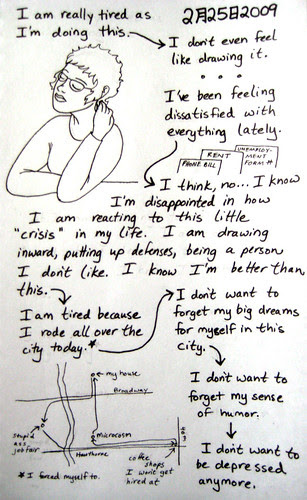 I am really tired as
I'm doing this.
2月25日2009
I don't even feel
like drawing it.
• • •
I've been feeling
dissatisfied with
everything lately.
RENT
PHONE BILL
UNEMPLOY-
MENT
FORM #
I think, no... I know
I'm disappointed in how
I am reacting to this little
"crisis" in my life. I am drawing
inward, putting up defenses, being a person
I don't like. I know I'm better than
this.
I am tired because
I rode all over the
city today.*
I don't want to
forget my big dreams
for myself in this
city.
I don't want to
forget my sense
of humor.
I don't want to
be depressed
anymore.
my house
Broadway
stupid
ass
job fair
Microcosm
Hawthorne
coffee
shops
I won't get
hired at
*I forced myself to.